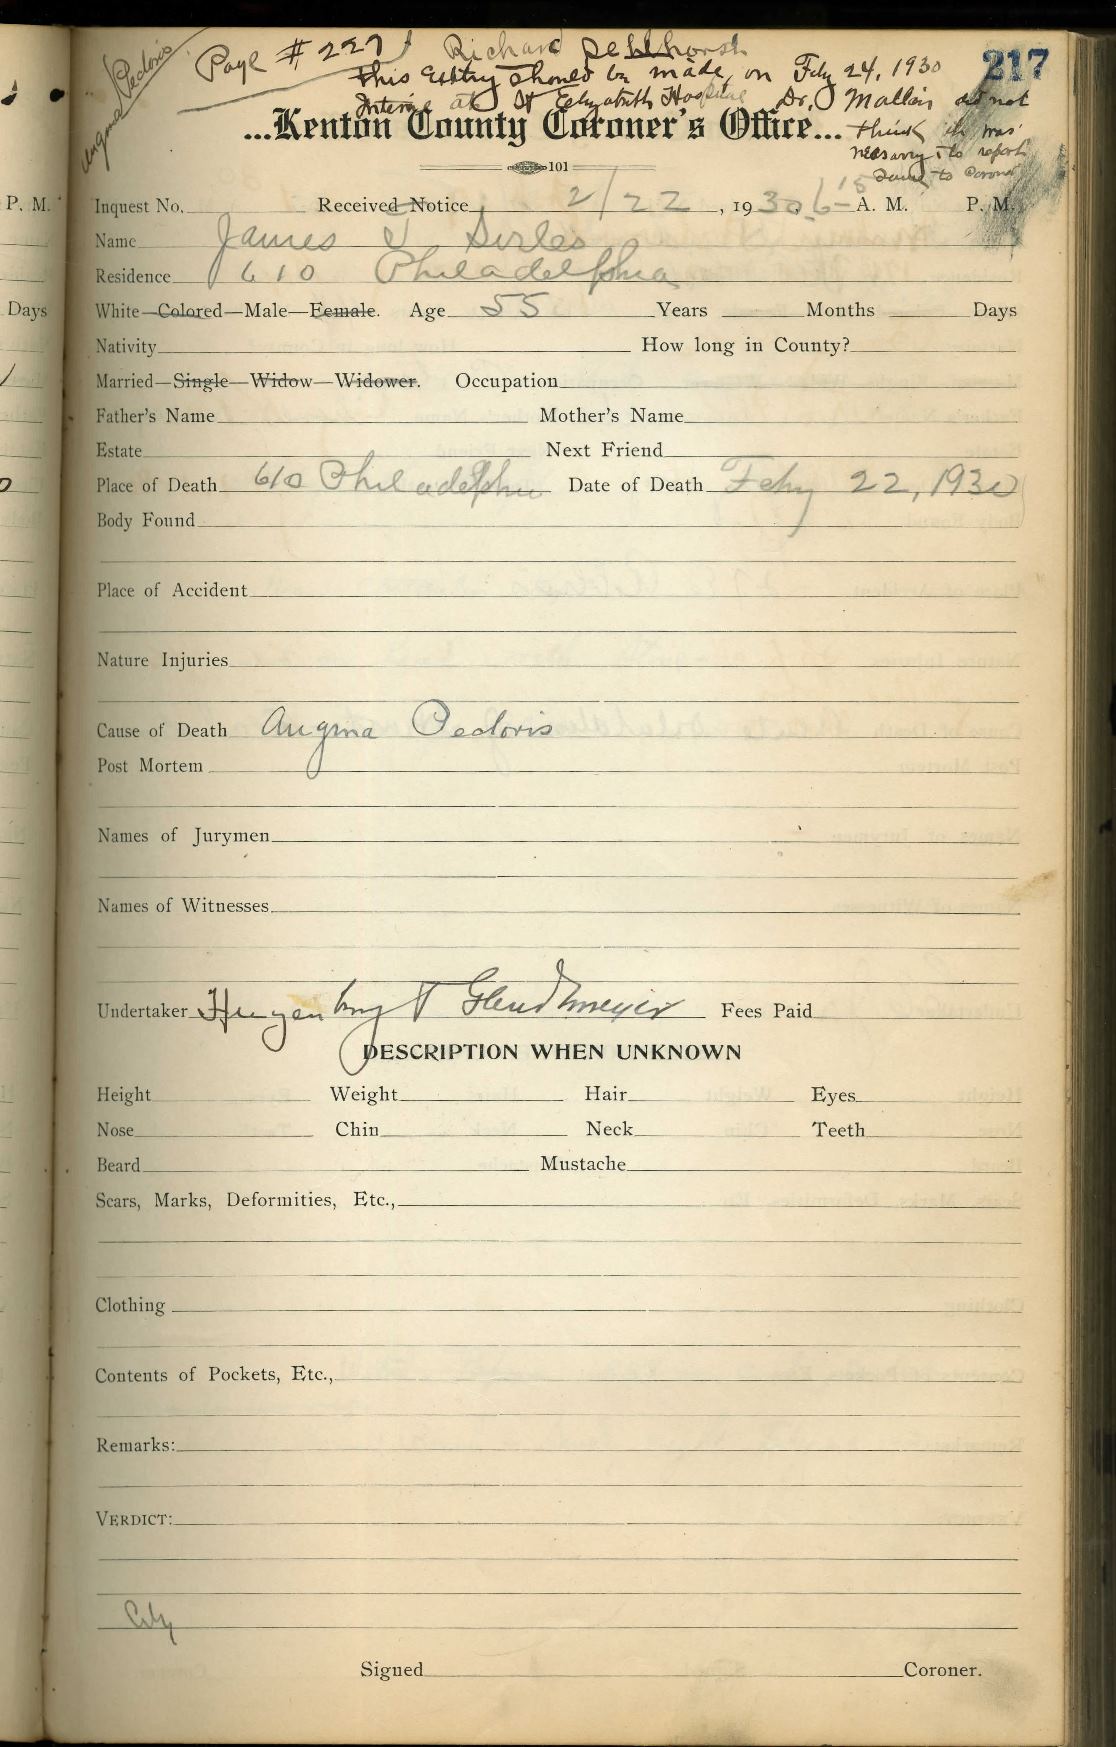 Angina Pectoris
Page # 227 Richard
217
This Entry Should be made on Feby 24, 1930
Interne at St Elizabeth Hospital Dr. did not
think it was
necessary to report
same to Coroner
...Kenton County Coroner's Office...
101
P. M.
Inquest No. Received Notice 2/22, 1930, 6 15 A. M. P. M.
Name James J
Residence 610 Philadelphia
Days
White—Colored—Male—Female. Age 55 Years Months Days
Nativity How long in County?
Married—Single—Widow—Widower. Occupation
Father's Name Mother's Name
Estate Next Friend
Place of Death 610 Philadelphia Date of Death Feby 22, 1930
Body Found
Place of Accident
Nature Injuries
Cause of Death Angina Pectoris
Post Mortem
Names of Jurymen
Names of Witnesses
Undertaker Fees Paid
DESCRIPTION WHEN UNKNOWN
Height Weight Hair Eyes
Nose Chin Neck Teeth
Beard Mustache
Scars, Marks, Deformities, Etc.,
Clothing
Contents of Pockets, Etc.,
Remarks:
VERDICT:
City
Signed Coroner.